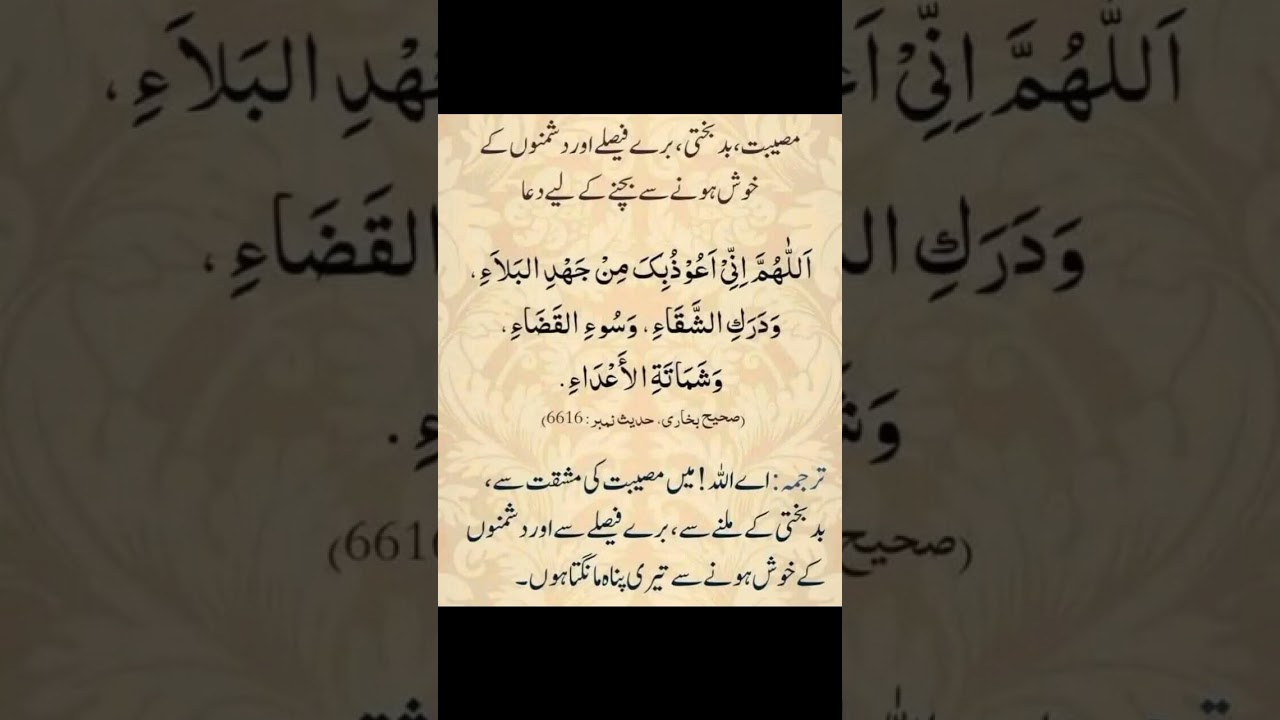 مصیبت، بدبختی، برے فیصلے اور دشمنوں کے
خوش ہونے سے بچنے کے لیے دعا
اَللّٰهُمَّ اِنِّيْ اَعُوْذُبِكَ مِنْ جَهْدِ البَلَاَءِ،
وَدَرَكِ الشَّقَاءِ، وَسُوءِ القَضَاءِ،
وَشَمَاتَةِ الأَعْدَاءِ.
(صحیح بخاری، حدیث نمبر: 6616)
ترجمہ: اے اللہ! میں مصیبت کی مشقت سے،
بدبختی کے ملنے سے، برے فیصلے سے اور دشمنوں
کے خوش ہونے سے تیری پناہ مانگتا ہوں۔